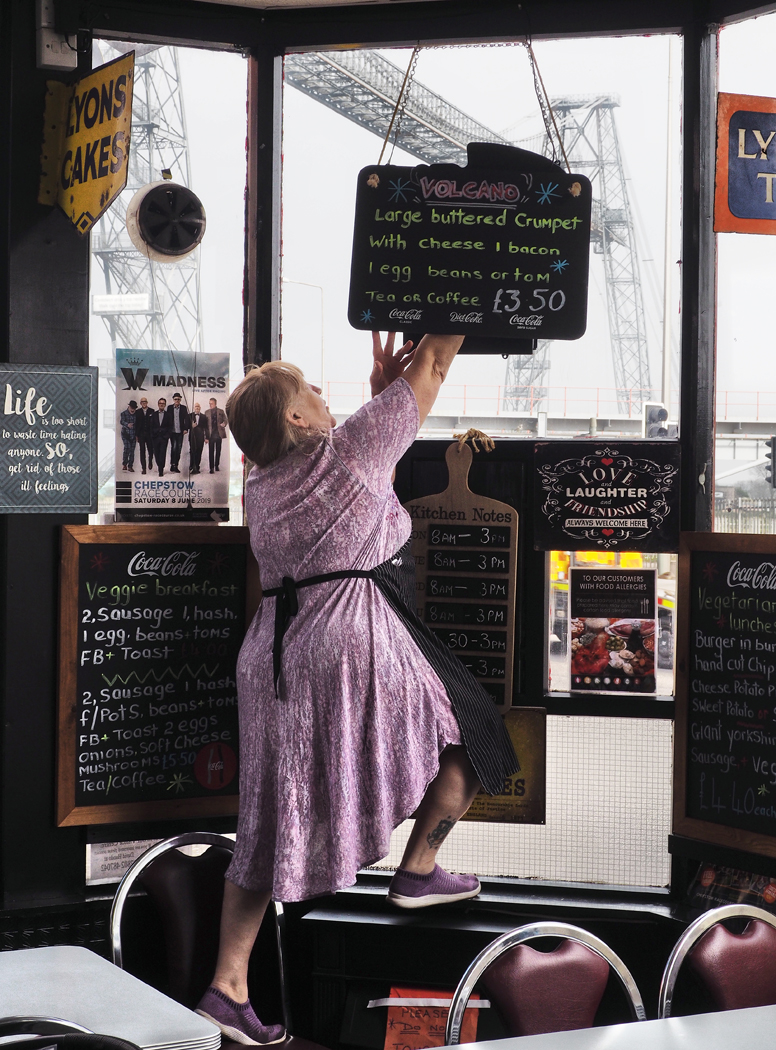 LYONS
CAKES
VOLCANO
Large buttered Crumpet
With cheese 1 bacon
1 egg beans or tom
Tea or Coffee £3.50
Coca-Cola
Diet Coke
Coca-Cola
LY
T
MADNESS
CHEPSTOW
RACECOURSE
SATURDAY 8 JUNE 2019
Life
is too short
to waste time hating
anyone so,
get rid of those
ill feelings
Kitchen Notes
8AM – 3PM
8AM – 3PM
8AM – 3PM
8AM – 3PM
30 – 3PM
– 3PM
LOVE
and
LAUGHTER
and
FRIENDSHIP
ALWAYS WELCOME HERE
TO OUR CUSTOMERS
WITH FOOD ALLERGIES
Coca-Cola
Veggie breakfast
2, Sausage 1, hash.
1 egg. beans + toms
FB + Toast
2, Sausage 1 hash
f/Pots, beans + toms
FB + Toast 2 eggs
onions, soft Cheese
Mushrooms £5.50
Tea/Coffee
Coca-Cola
Vegetarian
lunches
Burger in bun
hand cut Chip
Cheese Potato P
Sweet Potato
Giant yorkshi
Sausage. + veg
£4.40 each
PLEASE
Do NO